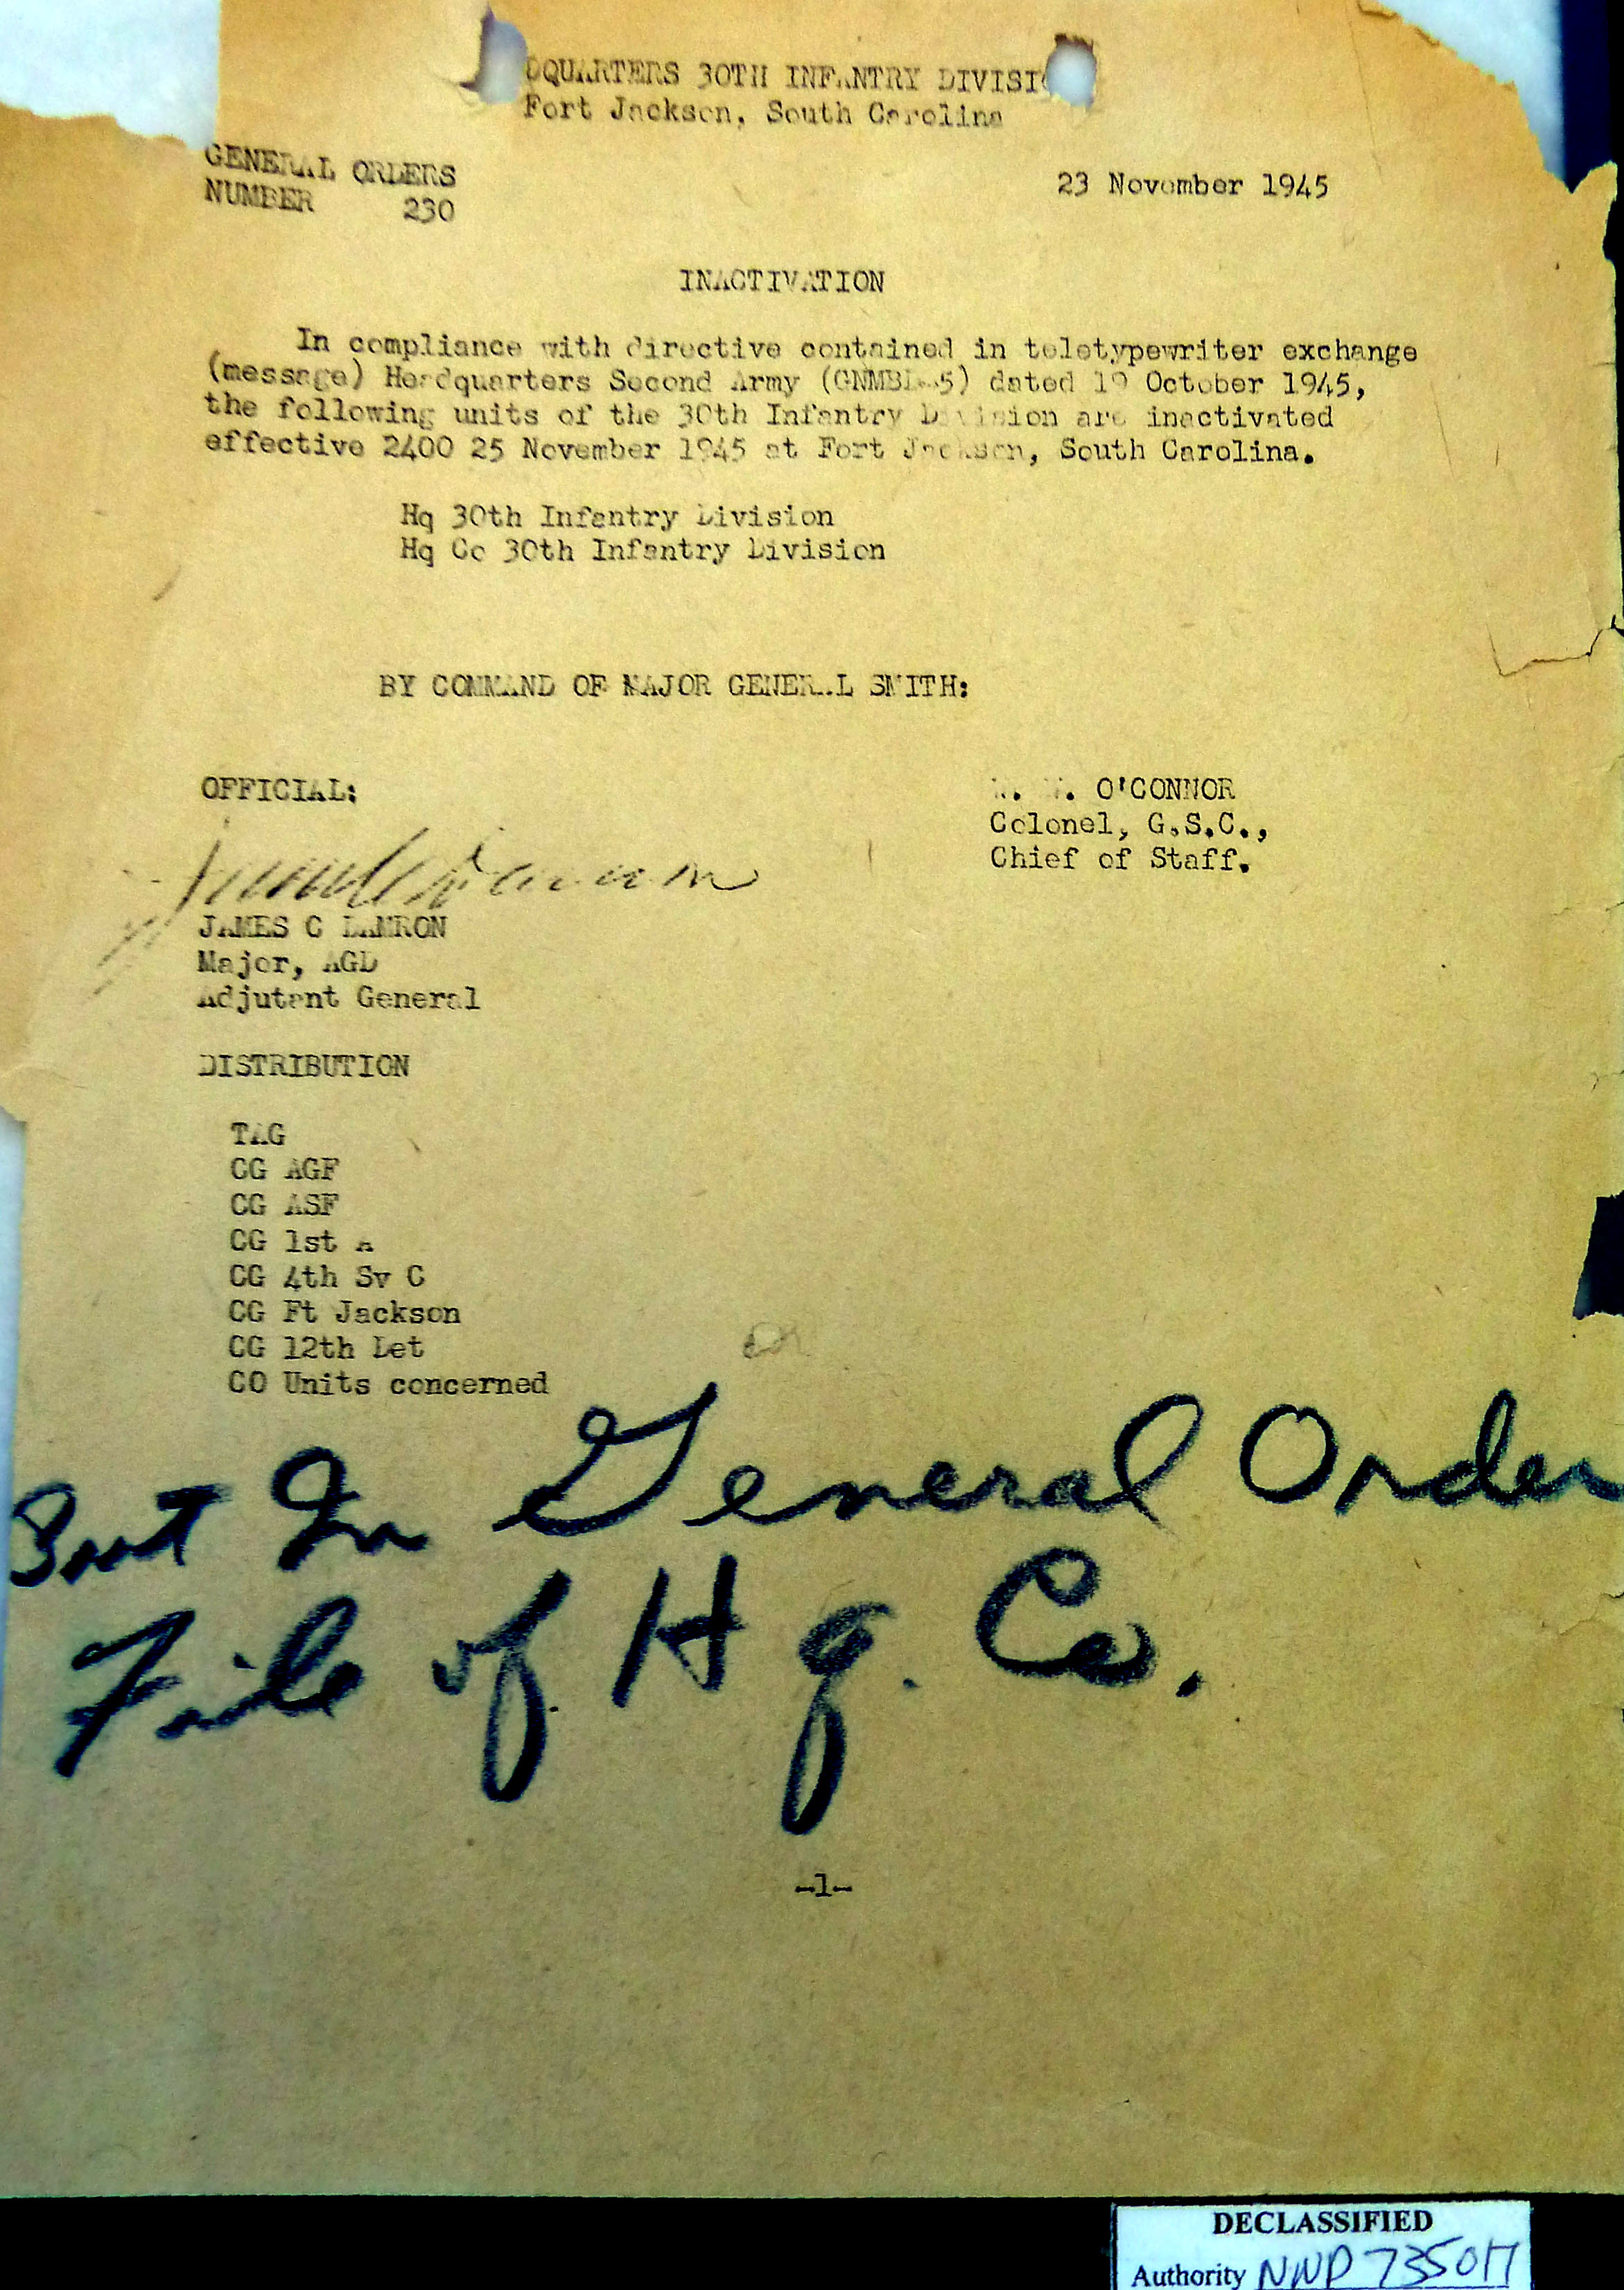 DQUARTERS 30TH INFANTRY DIVISI
Fort Jackson, South Carolina
GENERAL ORDERS
NUMBER 230
23 November 1945
INACTIVATION
In compliance with directive contained in teletypewriter exchange
(message) Headquarters Second Army dated 19 October 1945,
the following units of the 30th Infantry Division are inactivated
effective 2400 25 November 1945 at Fort Jackson, South Carolina.
Hq 30th Infantry Division
Hq Co 30th Infantry Division
BY COMMAND OF MAJOR GENERAL SMITH:
OFFICIAL:
O'CONNOR
Colonel, G.S.C.,
Chief of Staff.
JAMES C DAMRON
Major, AGD
Adjutant General
DISTRIBUTION
TAG
CG AGF
CG ASF
CG 1st A
CG 4th Sv C
CG Ft Jackson
CG 12th Det
CO Units concerned
In General Order
File of Hq. Co.
-1-
DECLASSIFIED
Authority NND 735017